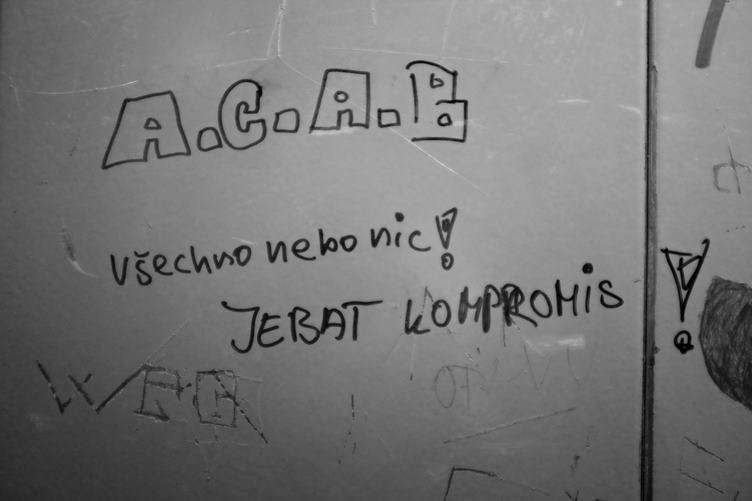 A.C.A.B
všechno nebo nic!
JEBAT KOMPROMIS!